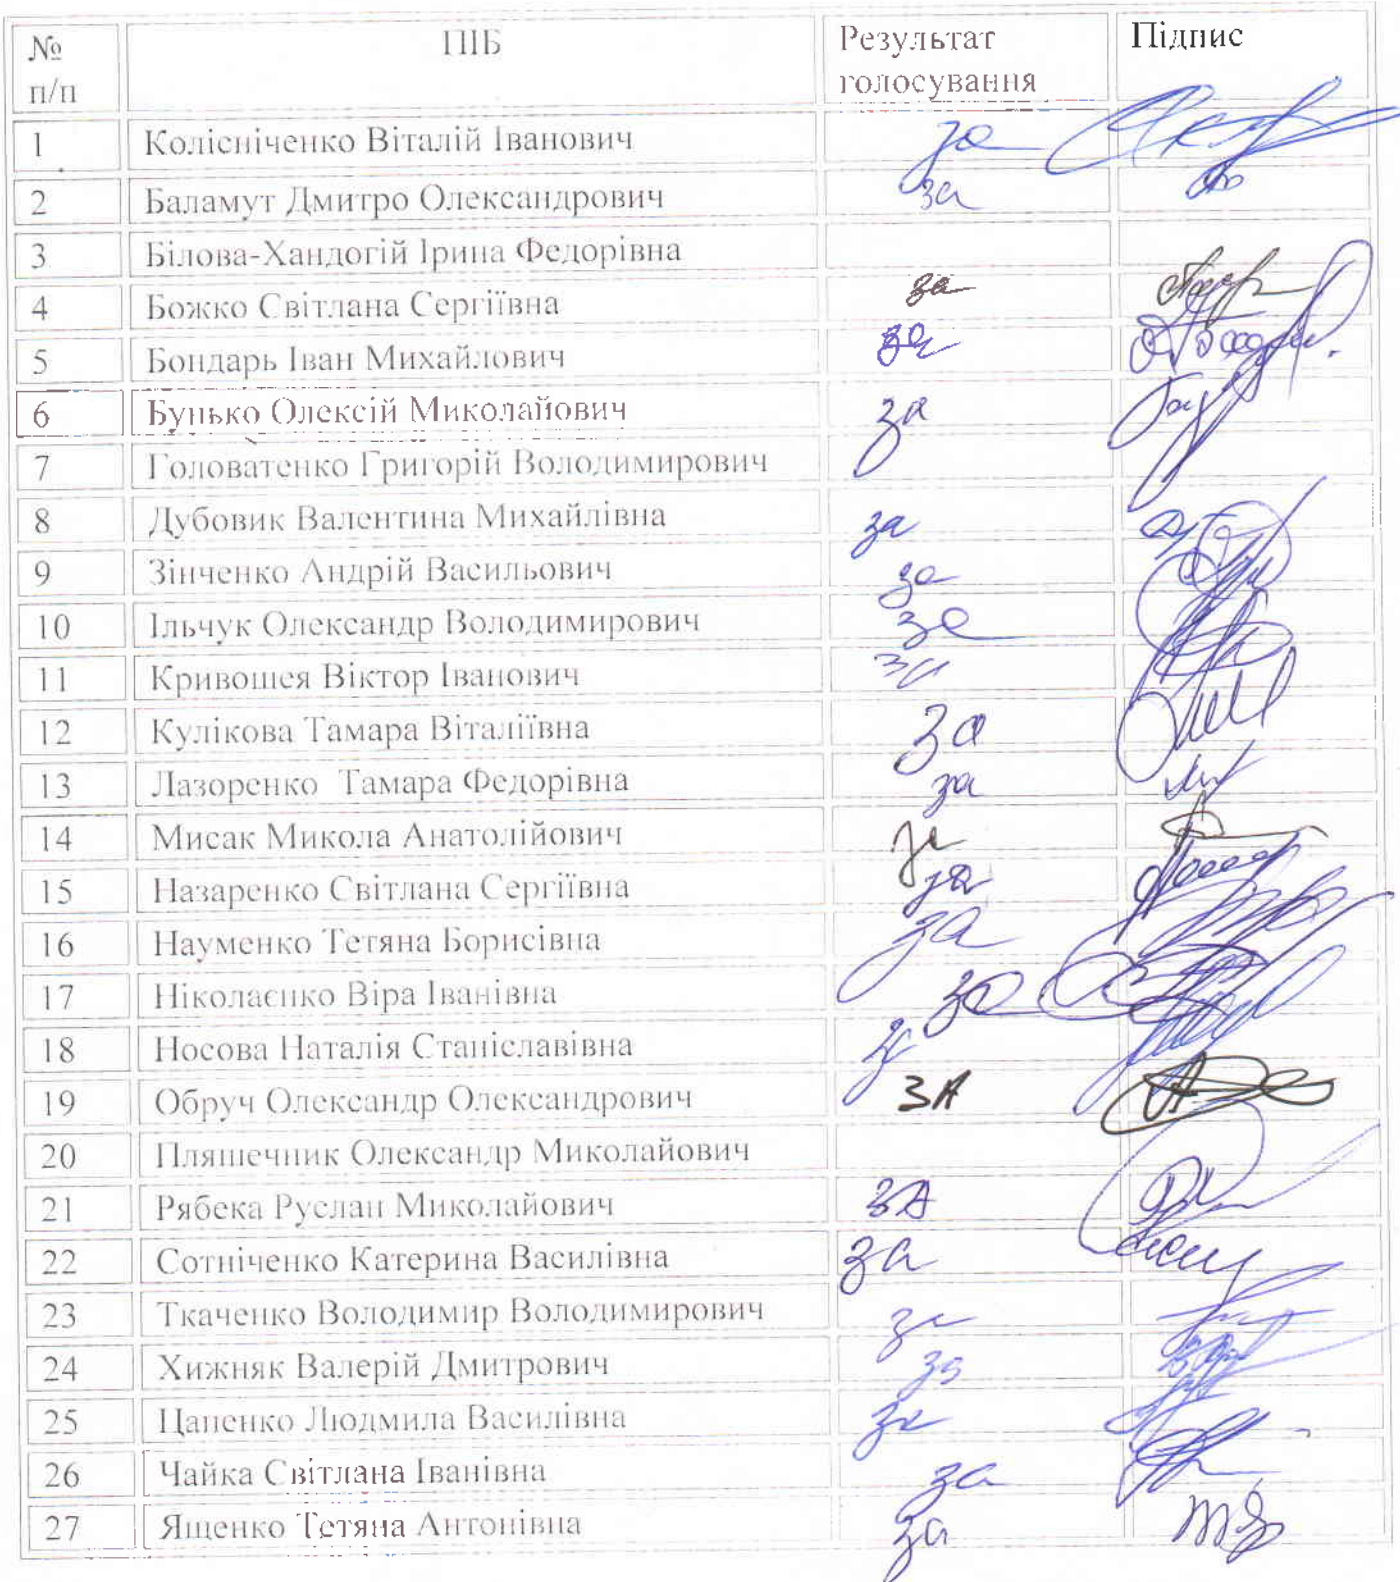 № п/п ПІБ Результат голосування Підпис
1 Колісніченко Віталій Іванович за
2 Баламут Дмитро Олександрович за
3 Білова-Хандогій Ірина Федорівна
4 Божко Світлана Сергіївна за
5 Бондарь Іван Михайлович за
6 Бунько Олексій Миколайович за
7 Головатенко Григорій Володимирович
8 Дубовик Валентина Михайлівна за
9 Зінченко Андрій Васильович за
10 Ільчук Олександр Володимирович за
11 Кривошея Віктор Іванович за
12 Кулікова Тамара Віталіївна за
13 Лазоренко Тамара Федорівна за
14 Мисак Микола Анатолійович за
15 Назаренко Світлана Сергіївна за
16 Науменко Тетяна Борисівна за
17 Ніколаєнко Віра Іванівна за
18 Носова Наталія Станіславівна за
19 Обруч Олександр Олександрович ЗА
20 Пляшечник Олександр Миколайович
21 Рябека Руслан Миколайович ЗА
22 Сотніченко Катерина Василівна за
23 Ткаченко Володимир Володимирович за
24 Хижняк Валерій Дмитрович за
25 Цапенко Людмила Василівна за
26 Чайка Світлана Іванівна за
27 Ященко Тетяна Антонівна за